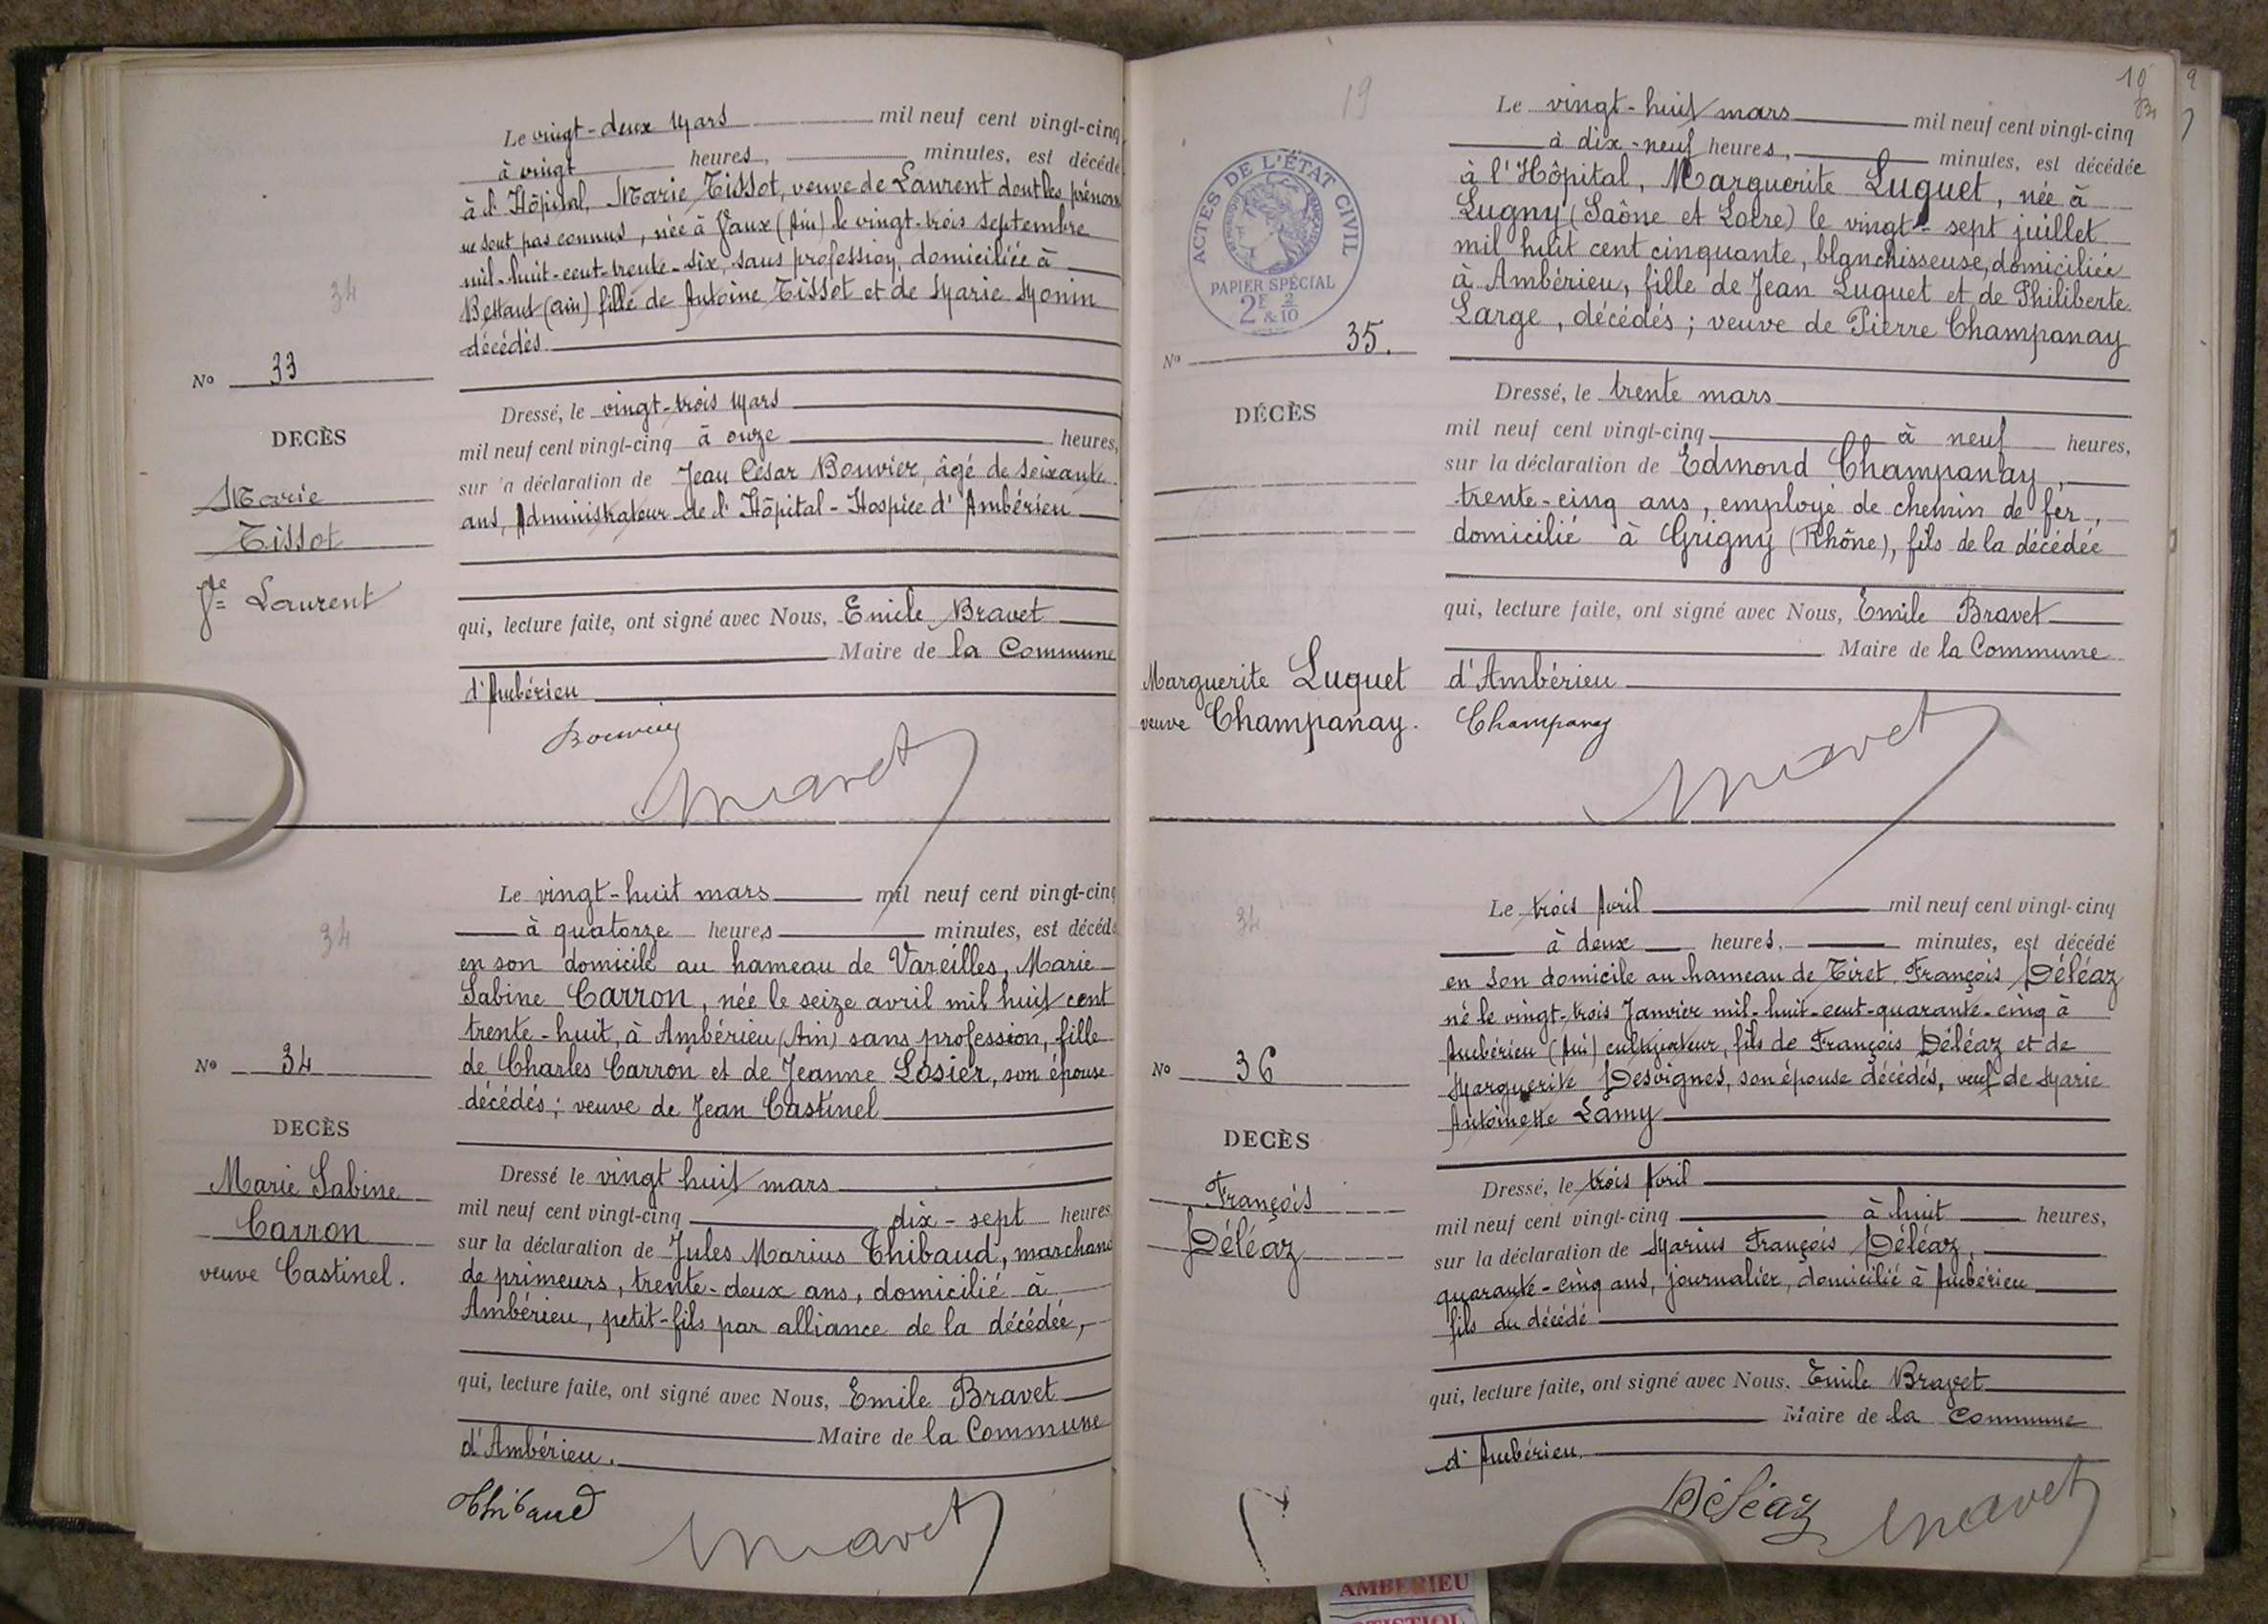 Le vingt-deux Mars mil neuf cent vingt-cinq
à vingt heures, minutes, est décédé
à l'Hôpital, Marie Tissot, veuve de Laurent dont les prénoms
ne sont pas connus, née à Vaux (Ain) le vingt-trois septembre
mil-huit-cent-trente-six, sans profession, domiciliée à
Bettant (ain) fille de Antoine Tissot et de Marie Monin
décédés.
34
No 33
DECÈS
Marie
Tissot
Vve Laurent
Dressé, le vingt-trois Mars
mil neuf cent vingt-cinq à onze heures,
sur la déclaration de Jean César Bouvier, âgé de soixante
ans, Administrateur de l'Hôpital-Hospice d'Ambérieu
qui, lecture faite, ont signé avec Nous, Emile Bravet
Maire de la Commune
d'Ambérieu
Bouvier
Bravet
Le vingt-huit mars mil neuf cent vingt-cinq
à quatorze heures minutes, est décédé
en son domicile au hameau de Vareilles, Marie
Sabine Carron, née le seize avril mil huit cent
trente-huit, à Ambérieu (Ain) sans profession, fille
de Charles Carron et de Jeanne Losier, son épouse
décédés; veuve de Jean Castinel
34
No 34
DECÈS
Marie Sabine
Carron
veuve Castinel.
Dressé le vingt huit mars
mil neuf cent vingt-cinq dix-sept heures
sur la déclaration de Jules Marius Thibaud, marchand
de primeurs, trente-deux ans, domicilié à
Ambérieu, petit-fils par alliance de la décédée,
qui, lecture faite, ont signé avec Nous, Emile Bravet
Maire de la Commune
d'Ambérieu.
Thibaud
Bravet
19
10
9
ACTES DE L'ÉTAT CIVIL
PAPIER SPÉCIAL
2F 2
& 10
Le vingt-huit mars mil neuf cent vingt-cinq
à dix-neuf heures, minutes, est décédée
à l'Hôpital, Marguerite Luquet, née à
Lugny (Saône et Loire) le vingt-sept juillet
mil huit cent cinquante, blanchisseuse, domiciliée
à Ambérieu, fille de Jean Luquet et de Philiberte
Large, décédés; veuve de Pierre Champanay
No 35.
DÉCÈS
Marguerite Luquet
veuve Champanay.
Dressé, le trente mars
mil neuf cent vingt-cinq à neuf heures,
sur la déclaration de Edmond Champanay,
trente-cinq ans, employé de chemin de fer,
domicilié à Grigny (Rhône), fils de la décédée
qui, lecture faite, ont signé avec Nous, Emile Bravet
Maire de la Commune
d'Ambérieu
Champanay
Bravet
Le trois Avril mil neuf cent vingt-cinq
à deux heures, minutes, est décédé
en son domicile au hameau de Tiret, François Déléaz
né le vingt-trois Janvier mil-huit-cent-quarante-cinq à
Ambérieu (Ain) cultivateur, fils de François Déléaz et de
Marguerite Desvignes, son épouse décédés, veuf de Marie
Antoinette Lamy
34
No 36
DECÈS
François
Déléaz
Dressé, le trois Avril
mil neuf cent vingt-cinq à huit heures,
sur la déclaration de Marius François Déléaz,
quarante-cinq ans, journalier, domicilié à Ambérieu
fils du décédé
qui, lecture faite, ont signé avec Nous, Emile Bravet
Maire de la Commune
d'Ambérieu.
Déléaz
Bravet
AMBERIEU